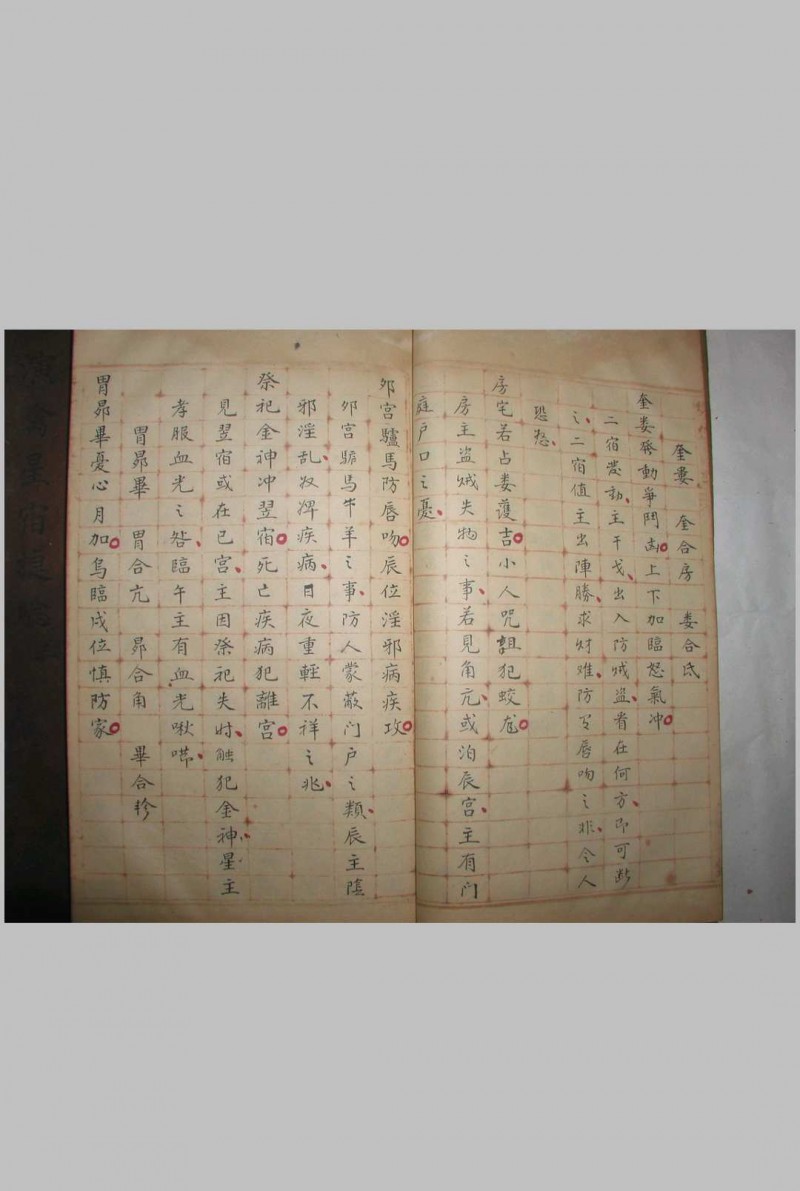 奎婁　奎合房　婁合氐
奎婁發動爭鬥凶上下加臨怒氣冲
二宿發動主干戈出入防賊盜看在何方即可斷
之二宿值主出陣勝求財难防有唇吻之非令人
恐愁
房宅若占娄護吉小人咒詛犯蛟尨
房主盜賊失物之事若見角亢或泊辰宫主有门
庭户口之憂
夘宫驢馬防唇吻辰位淫邪病疾攻
夘宫驢馬牛羊之事防人蒙蔽门户之類辰主陰
邪淫乱奴婢疾病日夜重輕不祥之兆
祭祀金神冲翌宿死亡疾病犯離宫
見翌宿或在巳宫主因祭祀失时触犯金神星主
孝服血光之咎臨午主有血光啾嘈
胃昴畢　胃合亢　昴合角　畢合軫
胃昴畢憂心月加烏臨戌位慎防家